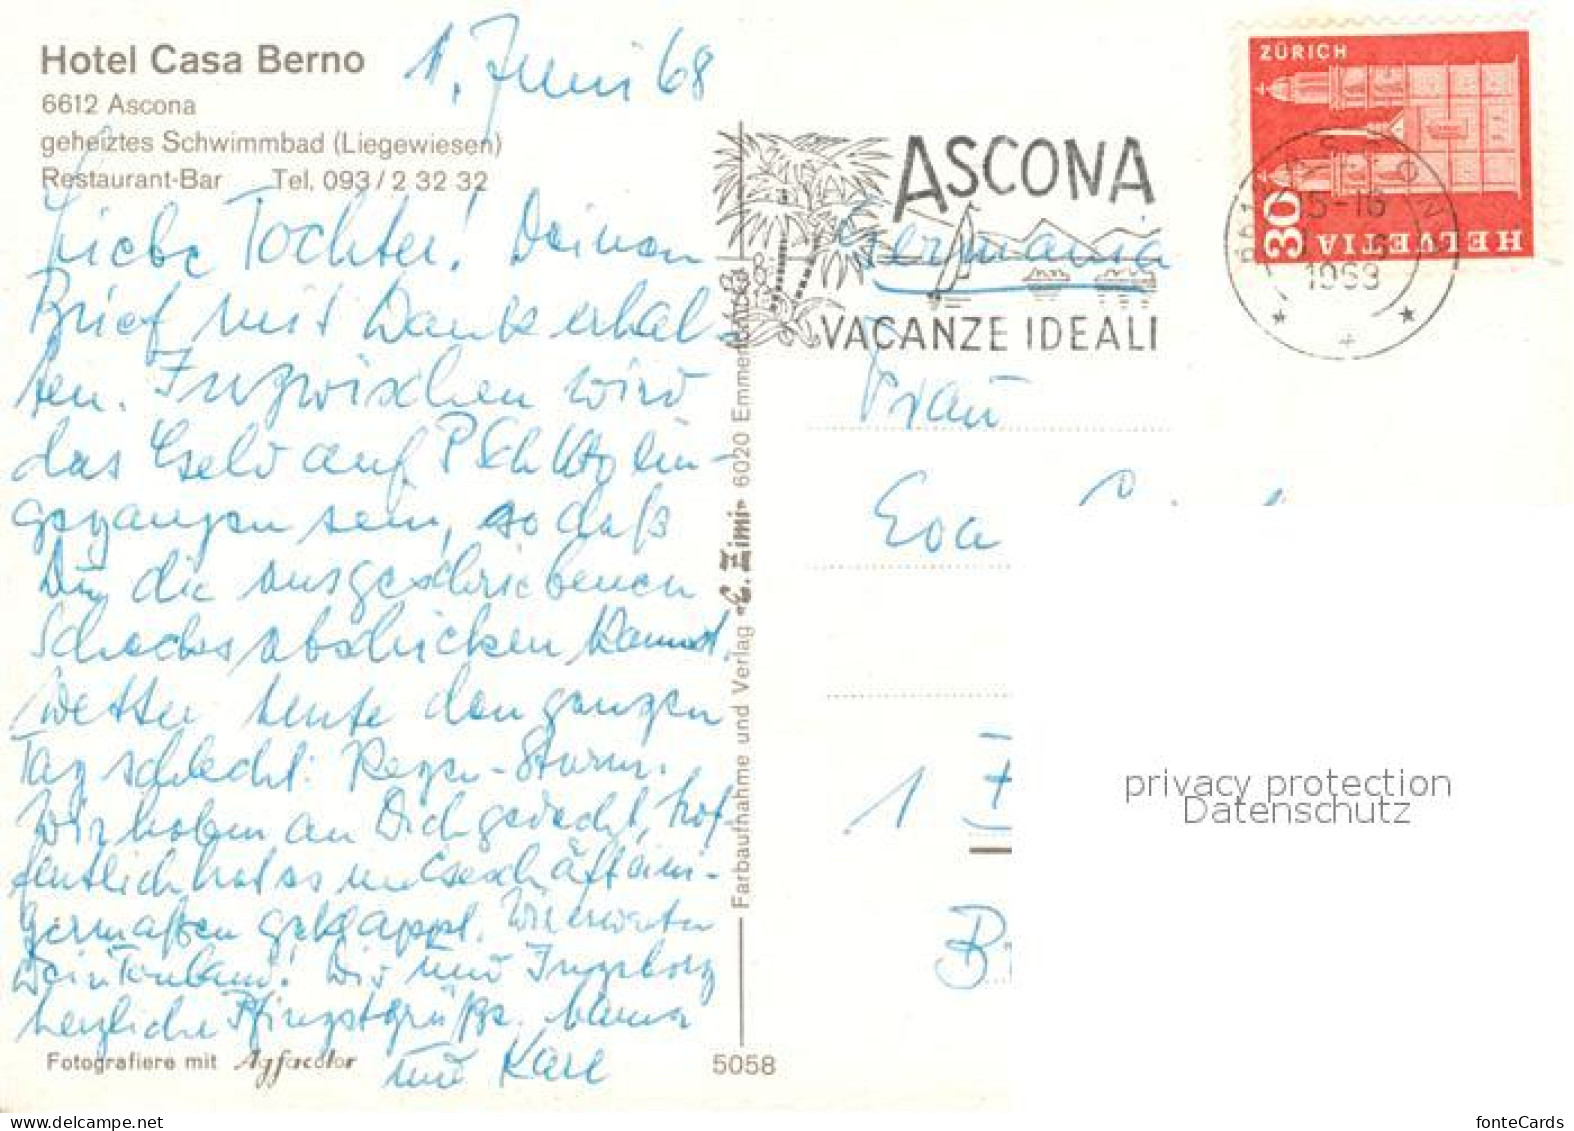 Hotel Casa Berno
6612 Ascona
geheiztes Schwimmbad (Liegewiesen)
Restaurant-Bar Tel. 093/2 32 32
1. Juni 68
Liebe Tochter! Deinen
Brief mit Dank erhal-
ten. Inzwischen wird
das Geld auf PSchKto ein-
gegangen sein, so daß
Du die ausgeschriebenen
Schecks abschicken kannst.
Wetter heute den ganzen
Tag schlecht: Regen-Sturm.
Wir haben an Dich gedacht, hof-
fentlich hat es im Geschäft eini-
germaßen geklappt. Wir erwarten
Dir und Ingeborg
herzliche Pfingstgrüße. Mama
und Karl
Fotografiere mit Agfacolor
5058
Farbaufnahme und Verlag E. Zimi 6020 Emmenbrücke
ASCONA
VACANZE IDEALI
ZÜRICH
30
HELVETIA
15-16
1968
Germania
Frau
Eva
1
B
privacy protection
Datenschutz
fonteCards